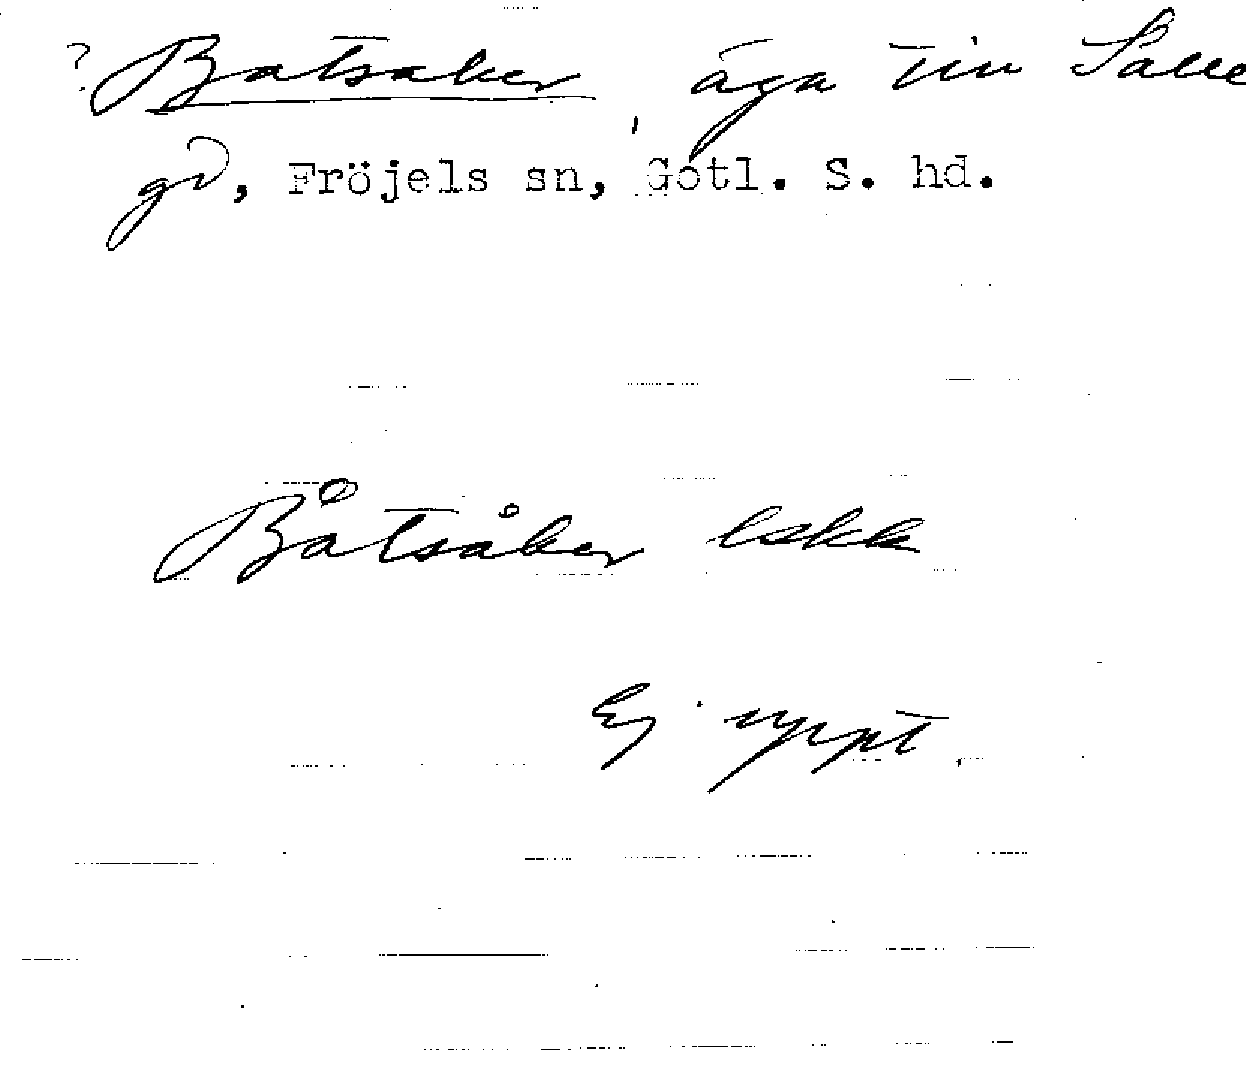 ? Batsaker, äga till Salle
gd, Fröjels sn, Gotl. S. hd.
Båtsåker lskk
Ej uppt.